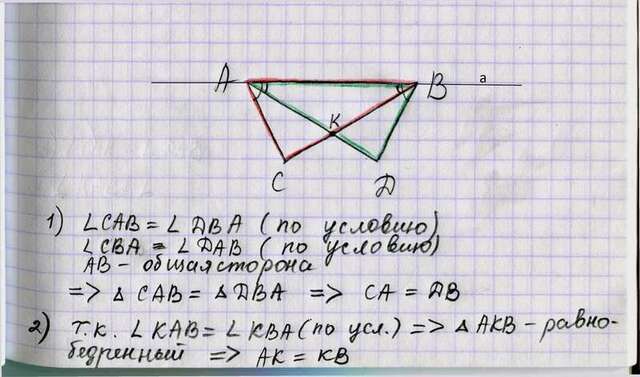 A B a
K
C D
1) ∠CAB = ∠DBA (по условию)
∠CBA = ∠DAB (по условию)
AB - общая сторона
=> △ CAB = △ DBA => CA = DB
2) т.к. ∠KAB = ∠KBA (по усл.) => △ AKB - равно-
бедренный => AK = KB